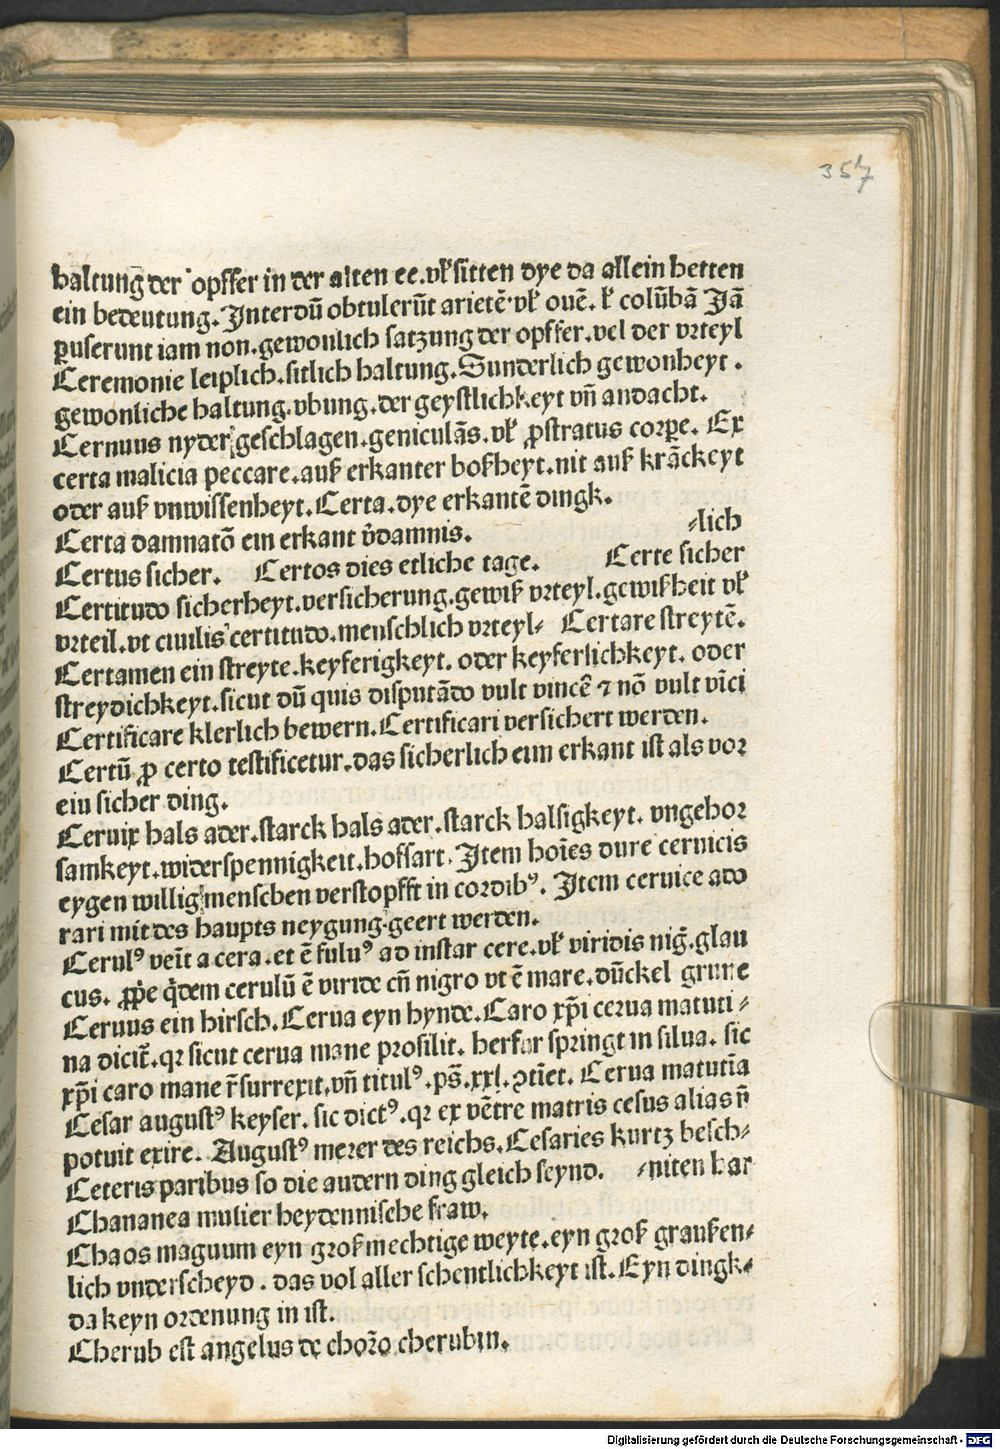 357
haltung der opffer in der alten ee.vľ sitten dye da allein hetten
ein bedeutung. Interdū obtulerūt arietē.vľ ouē. ľ colūbā Jā
ꝑuserunt iam non.gewonlich satzung der opffer.vel der vrteyl
Ceremonie leiplich.sitlich haltung.Sunderlich gewonheyt.
gewonliche haltung.vbung.der geystlichkeyt vn̄ andacht.
Cernuus nyder geschlagen.geniculās.vľ ꝓstratus corꝑe. Ex
certa malicia peccare.auß erkanter boßheyt.nit auß krāckeyt
oder auß vnwissenheyt.Certa.dye erkantē dingk.
Certa damnatō ein erkant v̄damnis. ⸗lich
Certus sicher. Certos dies etliche tage. Certe sicher
Certitudo sicherheyt.versicherung.gewiß vrteyl.gewißheit vľ
vrteil.vt ciuilis certitudo.menschlich vrteyl⸗ Certare streytē.
Certamen ein streyte.keyferigkeyt. oder keyferlichkeyt. oder
streydichkeyt.sicut dū quis disputādo vult vincē ⁊ nō vult vīci
Certificare klerlich bewern.Certificari versichert werden.
Certū ꝓ certo testificetur.das sicherlich eim erkant ist als vor
ein sicher ding.
Ceruix hals ader.starck hals ader.starck halsigkeyt. vngehor
samkeyt.widerspennigkeit.hoffart. Item hoīes dure ceruicis
eygen willig menschen verstopfft in cordibꝰ. Item ceruice ado
rari mit des haupts neygung.geert werden.
Cerulꝰ veīt a cera.et ē fuluꝰ ad instar cere.vľ viridis nig̃.glau
cus. ꝓpͥe q̇dem cerulū ē viride cū nigro vt ē mare.dūckel grune
Ceruus ein hirsch.Cerua eyn hynde.Caro xp̄i cerua matuti⸗
na dicit̃.qꝛ sicut cerua mane prosilit. herfur springt in silua. sic
xp̄i caro mane r̄surrexit.vn̄ titulꝰ.ps̄.xxl.ꝯtīet. Cerua matutīa
Cesar augustꝰ keyser. sic dictꝰ.qꝛ ex vētre matris cesus alias n̄
potuit exire. Augustꝰ merer des reichs.Cesaries kurtz besch⸗
Ceteris paribus so die andern ding gleich seynd. ⸗niten har
Chananea mulier heydennische fraw.
Chaos magnum eyn groß mechtige weyte.eyn groß graußen⸗
lich vnderscheyd. das vol aller schentlichkeyt ist. Eyn dingk⸗
da keyn ordenung in ist.
Cherub est angelus de choro cherubin.
Digitalisierung gefördert durch die Deutsche Forschungsgemeinschaft - DFG